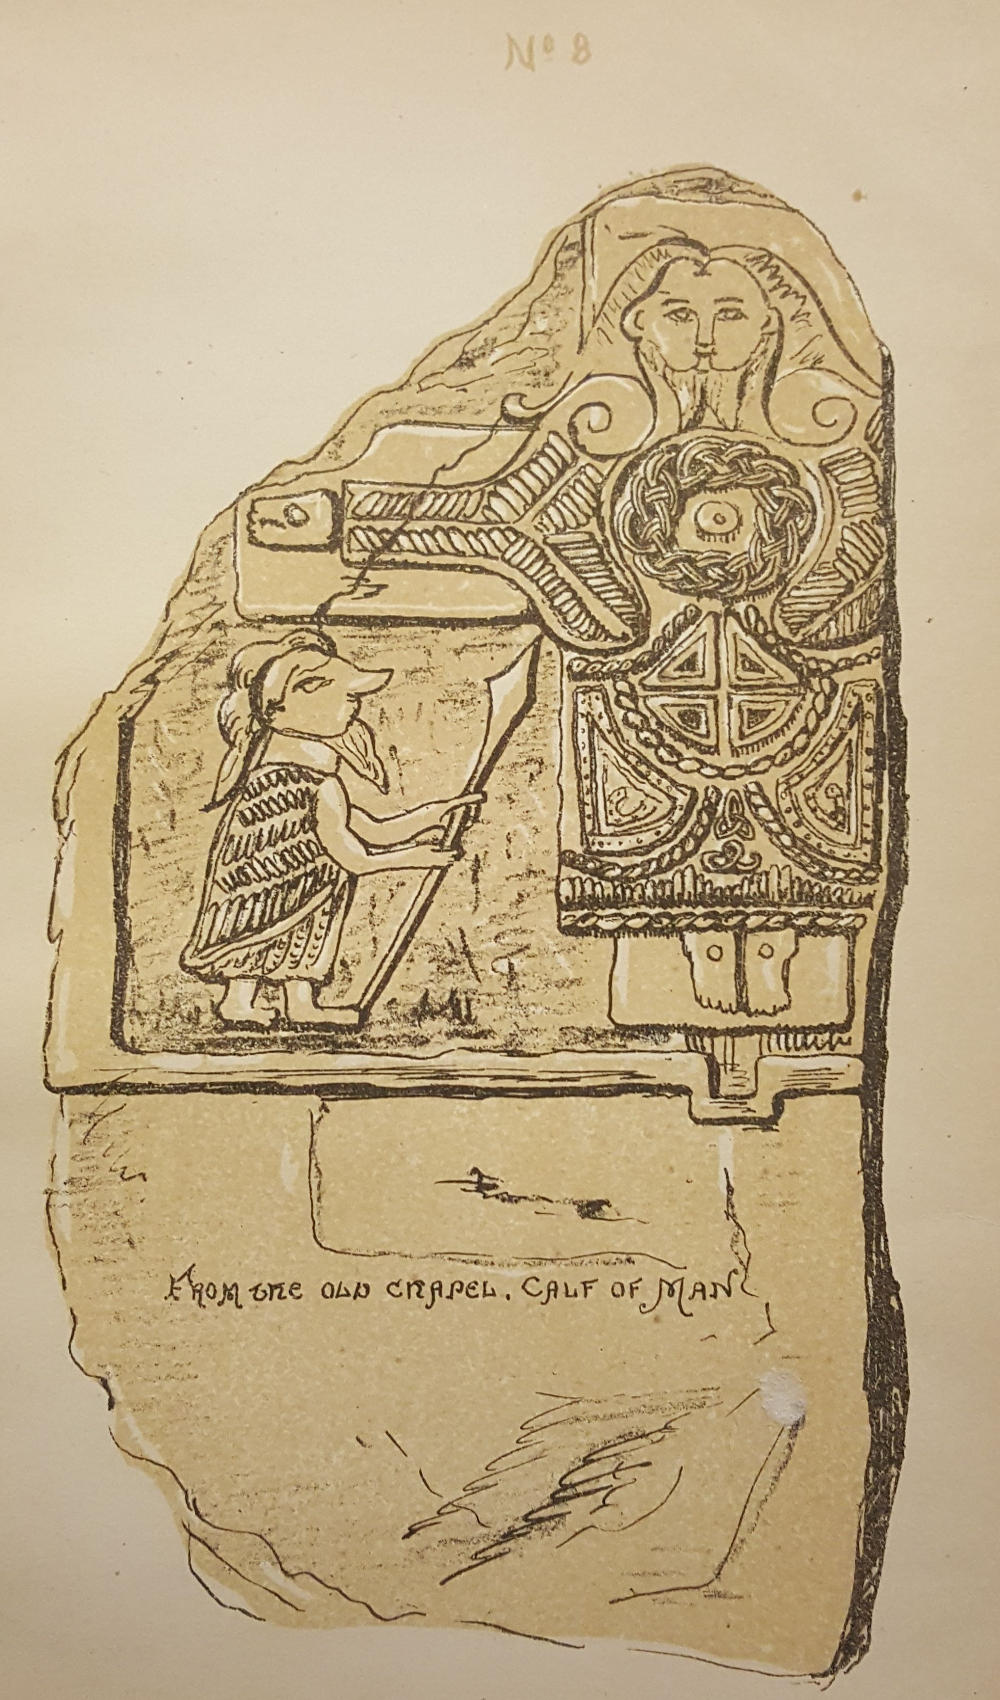 Nº 8
FROM THE OLD CHAPEL. CALF OF MAN